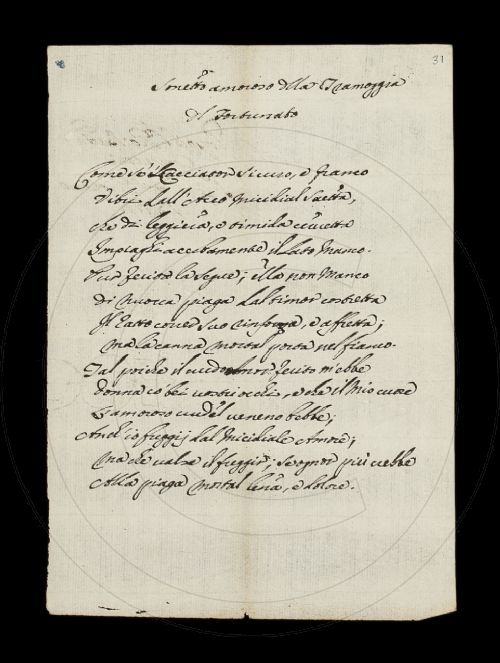 31
Sonetto amoroso della Tramoggia
del Fortunato
Come se 'l Cacciator sicuro, e franco
Vibri dall' Arco micidial saetta,
che di leggiera, e timida cervetta
Impiaghi acerbamente il lato manco.
Pur ferita la segue; ella non manco
di nuova piaga dal timor costretta
Il ratto corso suo rinforza, e affretta;
Ma la canna mortal porta nel fianco.
Tal poiche il crudo Amor ferito m'ebbe
donna co bei vostri occhi, e che il mio cuore
L'amoroso crudel veneno bebbe;
Anch' io fuggij dal micidiale Amore;
Ma che valse il fuggir; se ognor più crebbe
Alla piaga mortal lena, e dolore.